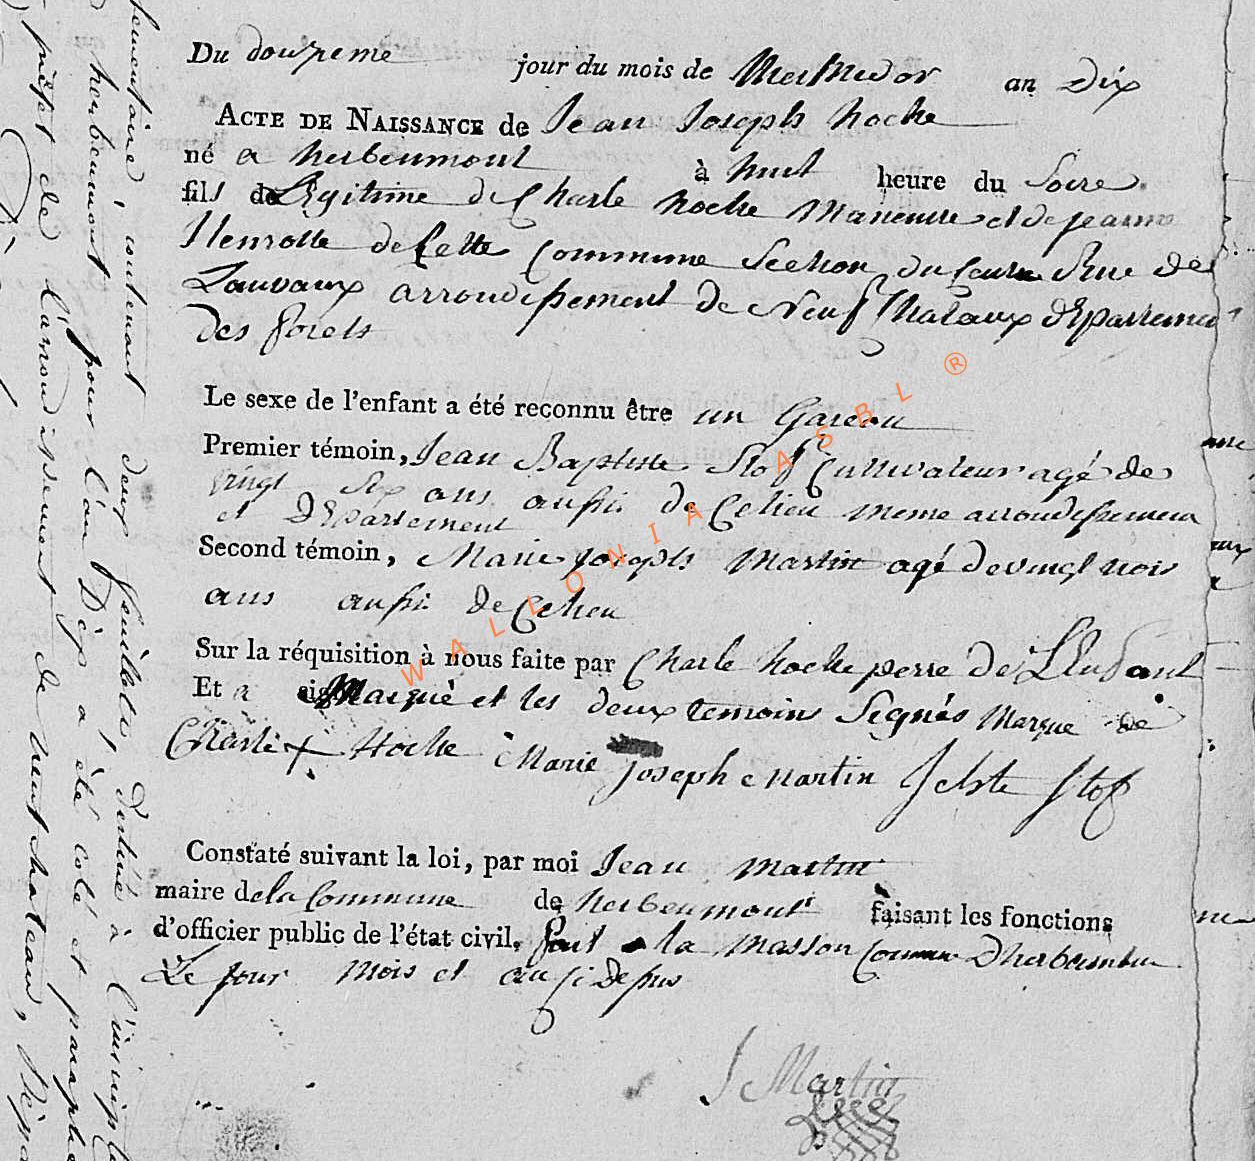 Du douzeme jour du mois de Messidor an Dix
ACTE DE NAISSANCE de Jean Joseph hocke
né a herbeumont à huit heure du Soire
fils de Legitime de Charle hocke Maneuvre et de jeanne
Henrotte de Cette Commune Section du Rue des
arrondissement de Neuf Chataux departement
des forets
Le sexe de l'enfant a été reconnu être un Garcon
Premier témoin, Jean Baptiste Stof Cultivateur agé de
vingt six ans aussi de Celieu meme arrondissement
et Departement
Second témoin, Marie joseph Martin agé de vingt trois
ans aussi de Celieu
Sur la réquisition à nous faite par Charle hocke perre de L'Enfant
Et a Marqué et les deux temoins Segnés Marque de
Charle + Hocke Marie Joseph Martin Stof
Constaté suivant la loi, par moi Jean Martin
maire de la Commune de herbeumont faisant les fonctions
d'officier public de l'état civil. fait a la Maison Commune D'herbeumon
Le Jour Mois et an ci Desus
J Martin
feuillets, destiné à
herbeumont pour l'an Dix a été coté et paraphé
préfet de l'arrondissement de neufchateau,
WALLONIA ASBL ®